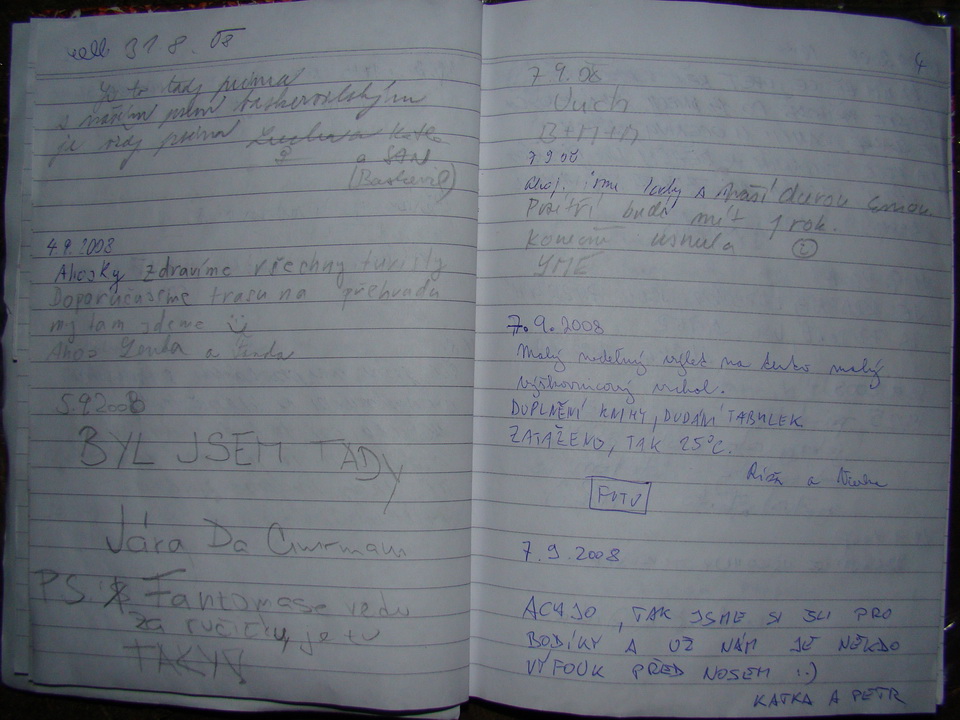 31.8.08
je to tady
s naším psem baskervillským
je vždy
a SAN
4.9.2008
Ahojky zdravíme všechny turisty
Doporučujeme trasu na přehradu
my tam jdeme
Ahoj Lenka a
5.9.2008
BYL JSEM TADY
Jára Da Cimrman
PS: Fantomase vedu
za ručičky, je tu
TAKY
4
7.9.08
B+M+M
7.9.08
Ahoj. jsme tady s naší dcerou
Pozítří bude mít 1 rok.
Konečně usnula
7.9.2008
Malý nedělný výlet na tento malý
vrchol.
DOPLNĚNÍ KNIHY, DODÁNÍ TABULEK
ZATAŽENO, TAK 25°C.
a
FOTO
7.9.2008
ACHJO, TAK JSME SI ŠLI PRO
BODÍKY A UŽ NÁM JE NĚKDO
VYFOUK PŘED NOSEM :-)
KATKA A PETR